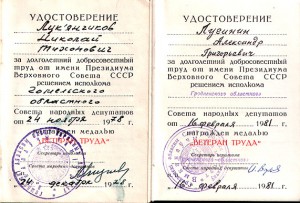 УДОСТОВЕРЕНИЕ
Лук'янчиков
Николай
Тихонович
за долголетний добросовестный
труд от имени Президиума
Верховного Совета СССР
решением исполкома
Гомельского
областного
Совета народных депутатов
от 24 ноября 1978 г.
награжден медалью
"ВЕТЕРАН ТРУДА"
декабря 1978 г.
УДОСТОВЕРЕНИЕ
Лусинин
Александр
Григорьевич
за долголетний добросовестный
труд от имени Президиума
Верховного Совета СССР
решением исполкома
Гродненского областного
Совета народных депутатов
от 16 февраля 1981 г.
награжден медалью
"ВЕТЕРАН ТРУДА"
16 февраля 1981 г.